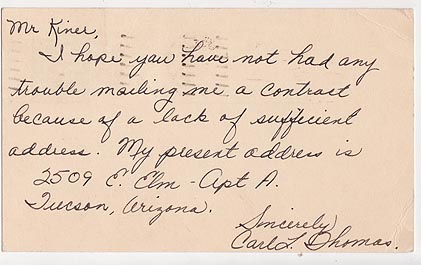 Mr Kiner,
I hope you have not had any
trouble mailing me a contract
because of a lack of sufficient
address. My present address is
2509 E. Elm - Apt A.
Tucson, Arizona.
Sincerely
Carl L. Thomas.